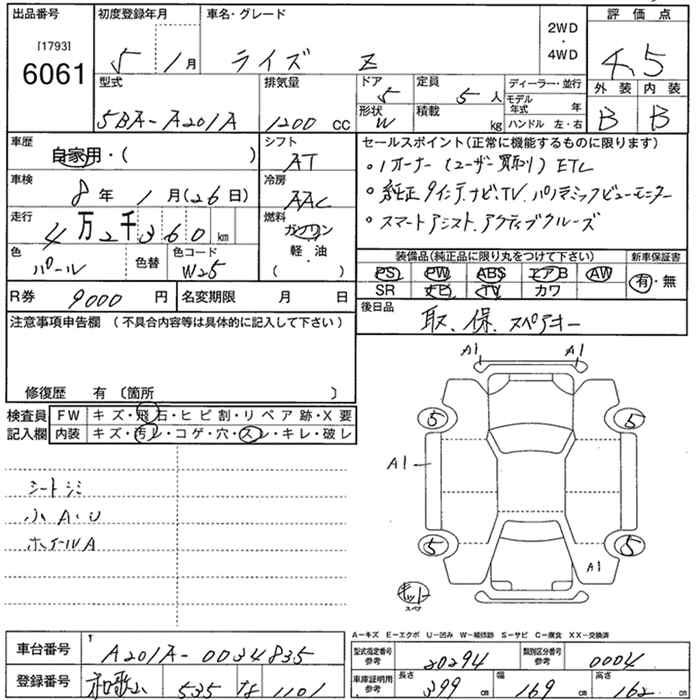 出品番号
[1793]
6061
初度登録年月
5 1月
車名・グレード
ライズ Z
2WD
・
4WD
評価点
4.5
外装 内装
B B
型式
5BA-A201A
排気量
1200 cc
ドア
5
形状
W
定員
5人
積載
kg
ディーラー・並行
モデル年式 年
ハンドル 左・右
車歴
自家用・( )
シフト
AT
車検
8年 1月(26日)
冷房
AAC
走行
4万2千360 km
燃料
ガソリン
軽・油
( )
色
パール
色替
色コード
W25
セールスポイント(正常に機能するものに限ります)
・1オーナー(ユーザー買取り) ETC
・純正9インチナビ、TV. パノラミックビューモニター
・スマートアシスト. アクティブクルーズ
装備品(純正品に限り丸をつけて下さい)
PS PW ABS エアB AW
SR ナビ TV カワ
新車保証書
有・無
R券 9000円
名変期限 月 日
後日品
取. 保. スペアキー
注意事項申告欄(不具合内容等は具体的に記入して下さい)
修復歴 有 〔箇所 〕
検査員記入欄
FW キズ・飛石・ヒビ割・リペア跡・X要
内装 キズ・汚レ・コゲ・穴・スレ・キレ・破レ
シートシミ
小A・U
ホイールA
A1 A1
5 5
A1
5 5
A1
キット
スペア
A-キズ E-エクボ U-凹み W-補修跡 S-サビ C-腐食 XX-交換済
車台番号
A201A-0034835
登録番号
和歌山 535 な 1101
型式指定番号
参考
20294
類別区分番号
参考
0004
車庫証明用
参考
長さ
399 cm
幅
169 cm
高さ
162 cm